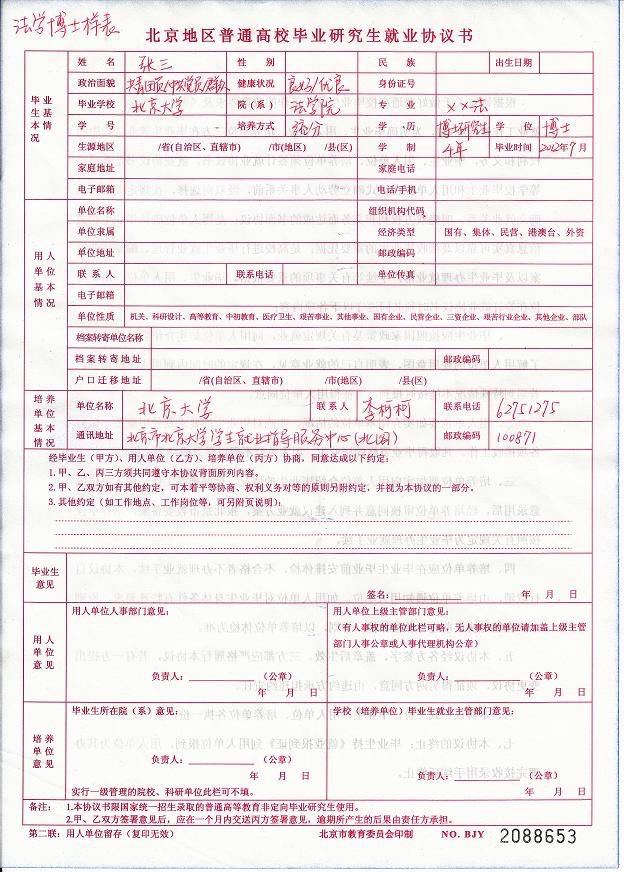 法学博士样表
北京地区普通高校毕业研究生就业协议书
毕业生基本情况
姓名 张三 性别 民族 出生日期
政治面貌 共青团员/中共党员/群众 健康状况 良好/优良 身份证号
毕业学校 北京大学 院（系） 法学院 专业 ××法
学号 培养方式 统分 学历 博士研究生 学位 博士
生源地区 /省(自治区、直辖市) /市(地区) /县(区) 学制 4年 毕业时间 2012年7月
家庭地址 家庭电话
电子邮箱 电话/手机
用人单位基本情况
单位名称 组织机构代码
单位隶属 经济类型 国有、集体、民营、港澳台、外资
单位地址 邮政编码
联系人 联系电话 单位传真
电子邮箱
单位性质 机关、科研设计、高等教育、中初教育、医疗卫生、艰苦事业、其他事业、国有企业、民营企业、三资企业、艰苦行业企业、其他企业、部队
档案转寄单位名称
档案转寄地址 邮政编码
户口迁移地址 /省(自治区、直辖市) /市(地区) /县(区)
培养单位基本情况
单位名称 北京大学 联系人 李柯柯 联系电话 62751275
通讯地址 北京市北京大学学生就业指导服务中心(北阁) 邮政编码 100871
经毕业生（甲方）、用人单位（乙方）、培养单位（丙方）协商，同意达成以下约定：
1.甲、乙、丙三方须共同遵守本协议背面所列内容。
2.甲、乙双方如有其他约定，可本着平等协商、权利义务对等的原则另附约定，并视为本协议的一部分。
3.其他约定（如工作地点、工作岗位等，可另附页说明）：
毕业生意见
签名：
年 月 日
用人单位意见
用人单位人事部门意见：
负责人： （公章）
年 月 日
用人单位上级主管部门意见：
（有人事权的单位此栏可略，无人事权的单位请加盖上级主管
部门人事公章或人事代理机构公章）
负责人： （公章）
年 月 日
培养单位意见
毕业生所在院（系）意见：
负责人： （公章）
年 月 日
实行一级管理的院校、科研单位此栏可不填。
学校（培养单位）毕业生就业主管部门意见：
负责人： （公章）
年 月 日
备注： 1.本协议书限国家统一招生录取的普通高等教育非定向毕业研究生使用。
2.甲、乙双方签署意见后，应在一个月内交送丙方签署意见，逾期所产生的后果由责任方承担。
第二联：用人单位留存（复印无效） 北京市教育委员会印制 NO. BJY 2088653